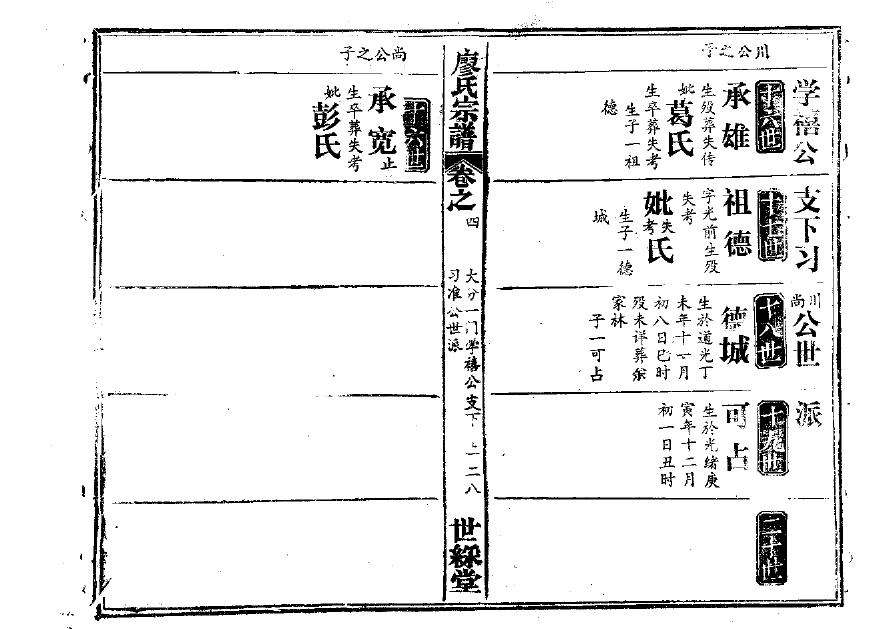 川公之子
学禧公支下习川尚公世派
十六世
承雄
生殁葬失传
妣葛氏
生卒葬失考
生子一祖
德
十七世
祖德
字光前生殁
失考
妣失考氏
生子一德
城
十八世
德城
生於道光丁
未年十一月
初八日巳时
殁未详葬余
家林
子一可占
十九世
可占
生於光绪庚
寅年十二月
初一日丑时
二十世
廖氏宗譜
卷之四
大分一门学禧公支下
习准公世派
二八
世綵堂
尚公之子
十六世
承宽止
生卒葬失考
妣彭氏